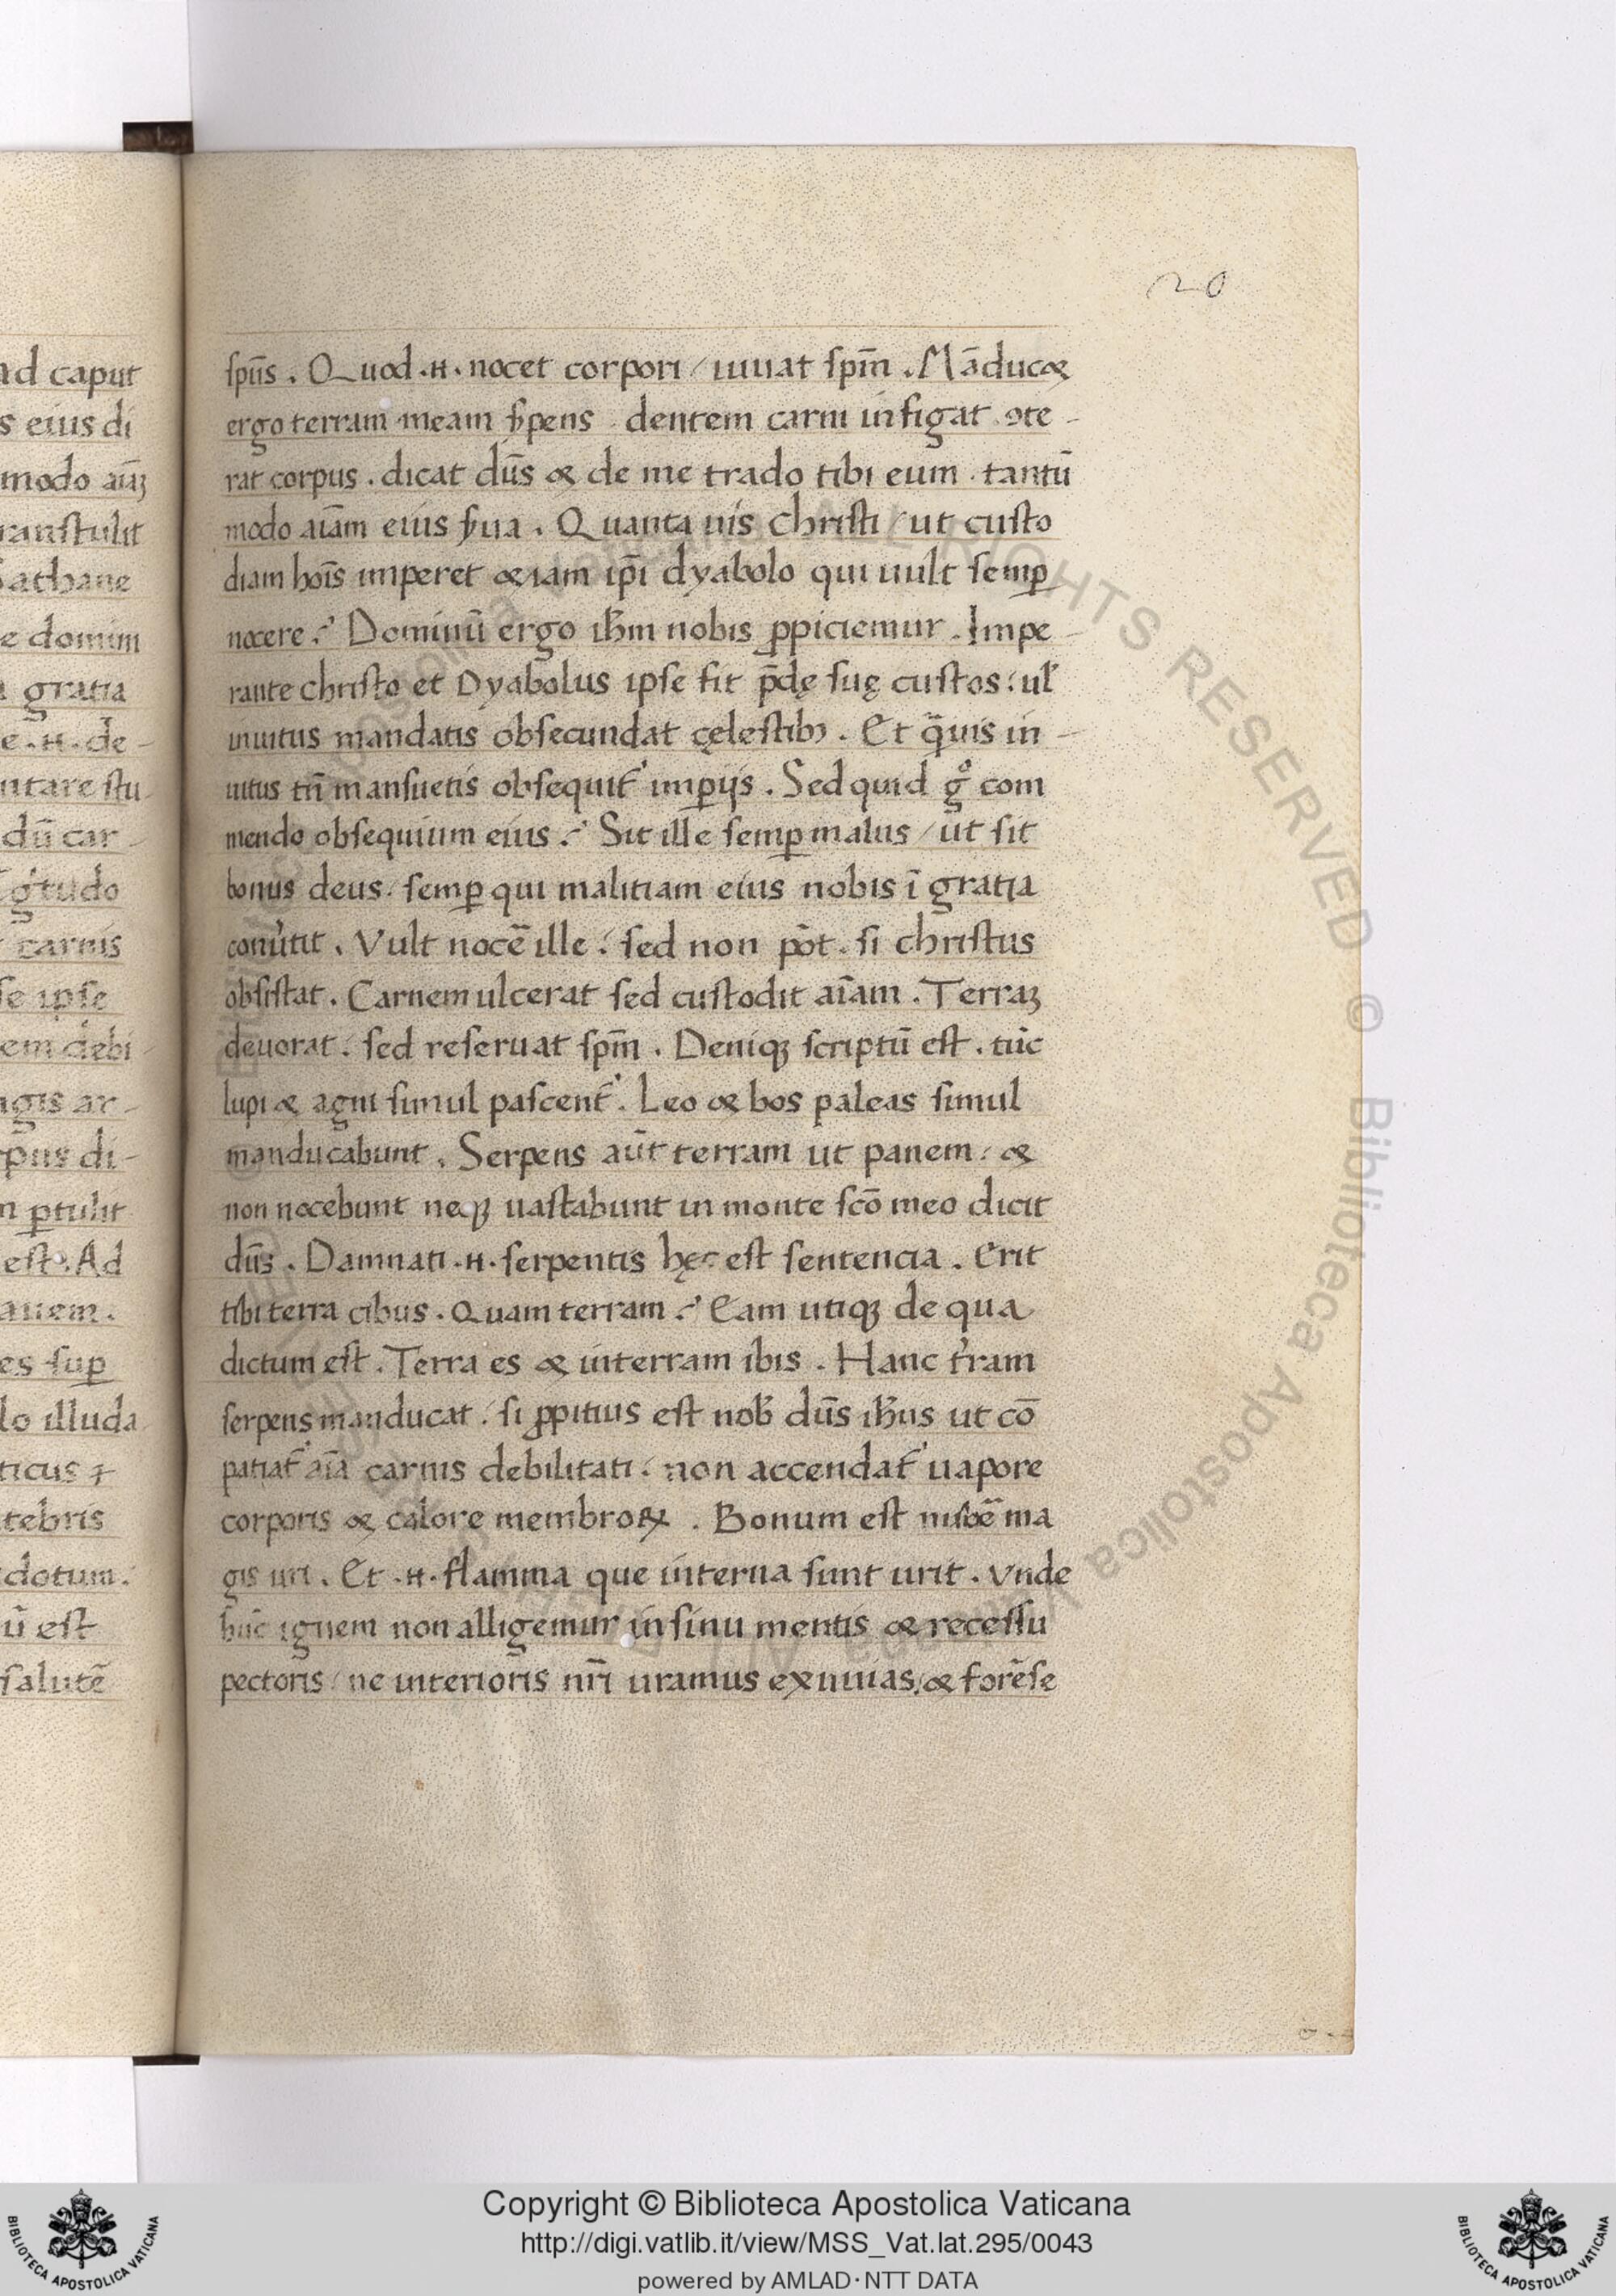 20
ad caput
s eius di
modo aiaꝫ
ranstulit
Sathane
e domini
gratia
e .H. de-
ntare stu
dū car-
carnis
se ipse
em debi
agis ar-
pus di-
ꝑtulit
est. Ad
anem.
es suꝑ
lo illuda
ticus
tebris
dotum.
ū est
salutē
spūs . Quod .H. nocet corpori / iuuat spm̄ . Māducet
ergo terram meam s̓pens dentem carni infigat ꝯte-
rat corpus . dicat dn̄s & de me trado tibi eum . tantū
modo aīam eius s̓ua . Quanta uis Christi / ut custo
diam hoīs imperet &iam ip̄i dyabolo qui uult semꝑ
nocere ? Dominū ergo ihm̄ nobis ꝓpiciemur . Impe-
rante christo et Dyabolus ipse fit p̄dę suę custos : ul̓
inuitus mandatis obsecundat cęlestibꝫ . Et q̈uis in-
uitus tn̄ mansuetis obsequit᷑ imꝑijs . Sed quid g° com
mendo obsequium eius ? Sit ille semꝑ malus / ut sit
bonus deus semꝑ qui malitiam eius nobis ī gratia
conu̓tit . Vult nocē ille : sed non pōt . si christus
obsistat . Carnem ulcerat sed custodit aīam . Terraꝫ
deuorat : sed reseruat spm̄ . Deniqꝫ scriptū est . tūc
lupi & agni simul pascent᷑ . Leo & bos paleas simul
manducabunt . Serpens aūt terram ut panem : &
non nocebunt neqꝫ uastabunt in monte scō meo dicit
dn̄s . Damnati .H. serpentis hęc est sentencia . Erit
tibi terra cibus . Quam terram ? Eam utiqꝫ de qua
dictum est . Terra es & in terram ibis . Hanc t̓ram
serpens manducat : si ꝓpitius est nob̓ dn̄s ihūs ut cō
patiat᷑ aīa carnis debilitati : non accendat᷑ uapore
corporis & calore membroꝝ . Bonum est nubē ma
gis uri . Et .H. flamma que interna sunt urit . Vnde
hūc ignem non alligemur in sinu mentis & recessu
pectoris / ne interioris nr̄i uramus exuuias : & forēse
Copyright © Biblioteca Apostolica Vaticana
http://digi.vatlib.it/view/MSS_Vat.lat.295/0043
powered by AMLAD·NTT DATA
BIBLIOTECA APOSTOLICA VATICANA
BIBLIOTECA APOSTOLICA VATICANA